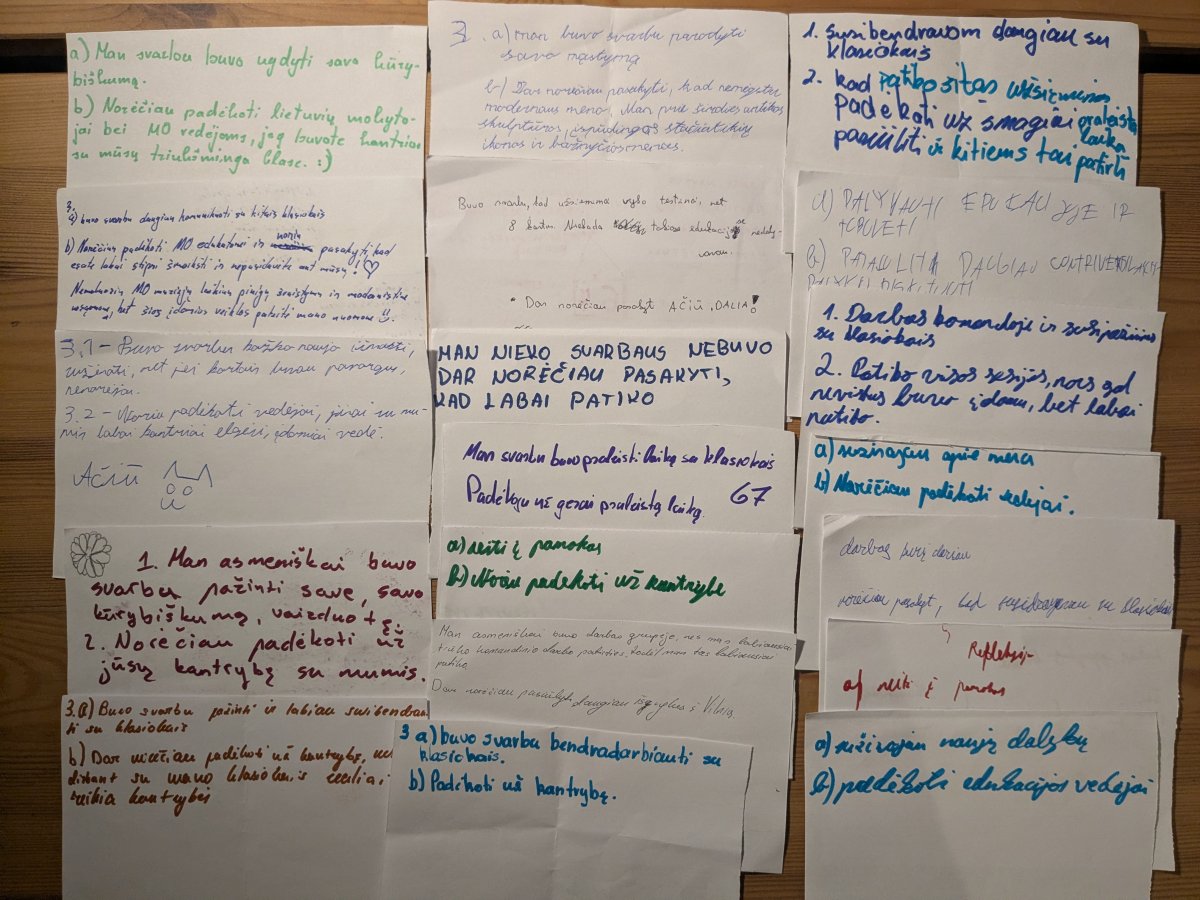 a) Man svarbu buvo ugdyti savo kūry-
biškumą.
b) Norėčiau padėkoti lietuvių mokyto-
jai bei MO vedėjoms, jog buvote kantrios
su mūsų triukšminga klase. :)
3.
a) buvo svarbu daugiau komunikuoti su kitais klasiokais
b) Norėčiau padėkoti MO edukatorei ir noriu pasakyti, kad
esate labai stipri išmoksti ir nepasiduoti ant mūsų!
MO muziejų laikiau pinigų švaistymu ir modernistine
bet šios įdomios veiklos pakeitė mano nuomonę
3.1 - Buvo svarbu kažko naujo išmokti,
sužinoti, net jei kartais buvau pavargus,
nenorėjau.
3.2 - Noriu padėkoti vedėjai, jinai su mu-
mis labai kantriai elgėsi, įdomiai vedė.
AČIŪ
1. Man asmeniškai buvo
svarbu pažinti save, savo
kūrybiškumą, vaizduotę.
2. Norėčiau padėkoti už
jūsų kantrybę su mumis.
3. a) Buvo svarbu pažinti ir labiau susibendrau
ti su klasiokais
b) Dar norėčiau padėkoti už kantrybę, nes
dirbant su mano klasiokais
reikia kantrybės
3. a) man buvo svarbu parodyti
savo mąstymą
b) Dar norėčiau pasakyti, kad nemėgstu
modernaus meno. Man prie širdies antikos
skulptūros, įspūdingos stačiatikių
ikonos ir bažnyčios menas.
Buvo svarbu, kad užsiėmimai vyko testinai, net
8 kartus. Niekada tokiose edukacijose nedaly-
vavau.
* Dar norėčiau pasakyt AČIŪ, DALIA!
MAN NIEKO SVARBAUS NEBUVO
DAR NORĖČIAU PASAKYTI,
KAD LABAI PATIKO
Man svarbu buvo praleisti laiką su klasiokais
Padėkoju už gerai praleistą laiką. 67
a) neiti į pamokas
b) Noriu padėkoti už kantrybę
Man asmeniškai buvo darbas grupėje, nes man labiausiai
trūko komandinio darbo patirties, todėl man tas labiausiai
patiko.
Dar norėčiau pasiūlyti daugiau išvykų į Vilnių
3 a) buvo svarbu bendradarbiauti su
klasiokais.
b) Padėkoti už kantrybę.
1. susibendravom daugiau su
klasiokais
2. kad patiko šitas užsiėmimas
padėkoti už smagiai praleistą
laiką
pasiūlyti ir kitiems tai patirti
a) DALYVAUTI EDUKACIJOJE IR
TOBULĖTI
b) PASIŪLYTI DAUGIAU
1. Darbas komandoje ir susipažinimas
su klasiokais
2. Patiko visos sesijos, nors gal
ne viskas buvo įdomu, bet labai
patiko.
a) sužinojau apie meną
b) Norėčiau padėkoti vedėjai.
darbas kurį dariau
norėčiau pasakyt, kad susibendravau su klasiokais
Refleksija
a) neiti į pamokas
a) sužinojau naujų dalykų
b) padėkoti edukacijos vedėjai